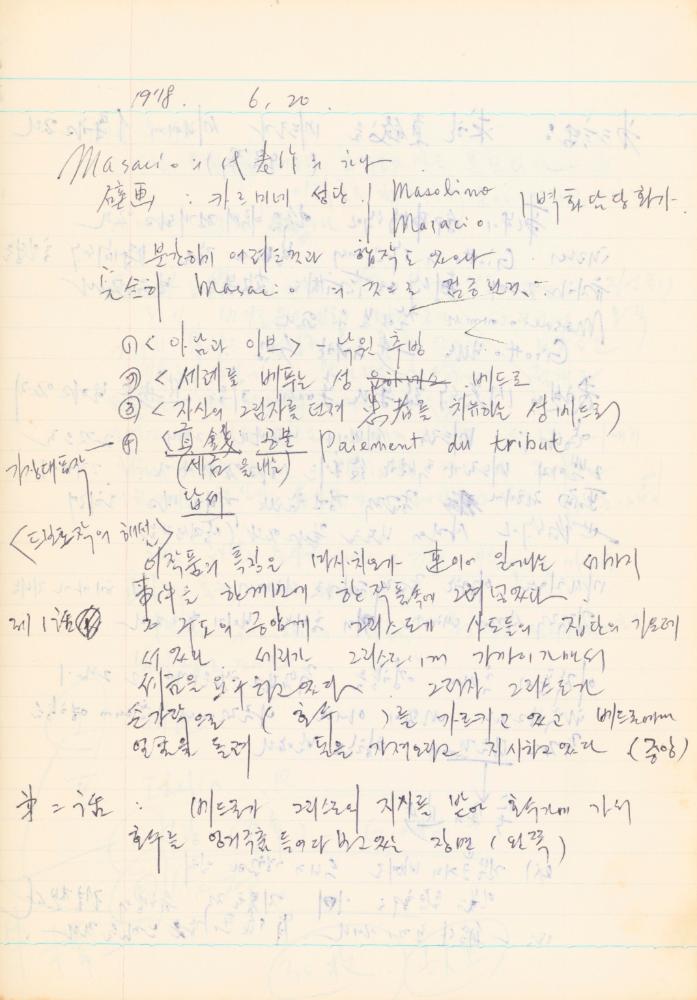 1978. 6. 20.
Masacio의 代表作의 하나
壁画 : 카르미네 성당 Masolino
Masacio 벽화담당화가.
분간하기 어려운것과 합작도 있으나
순수히 Masacio의 것으로 검증된것은
① <아담과 이브> - 낙원추방
② <세례를 베푸는 성 베드로
③ <자신의 그림자를 던져 患者를 치유하는 성베드로>
가장대표작 — ④ <貢銭 공물 Paiement du tribut
(세금을내는)
납세
이작품의 특징은 마사치오가 일어나는 세가지
事件을 한꺼번에 한작품속에 그려넣었다
제1话 ① 그 구도의 중앙에 그리스도가 사도들의 집단의 가운데
서있고 세리가 그리스도에게 가까이가면서
세금을 요구하고있다. 그러자 그리스도가
손가락으로 ( 호수 )를 가르키고 있고 베드로에게
얼굴을 돌려 돈을 가져오라고 지시하고있다 (중앙)
第二话 : 베드로가 그리스도의 지시를 받아 호수가에 가서
호수를 엉거주춤 들여다 보고있는 장면 (왼쪽)